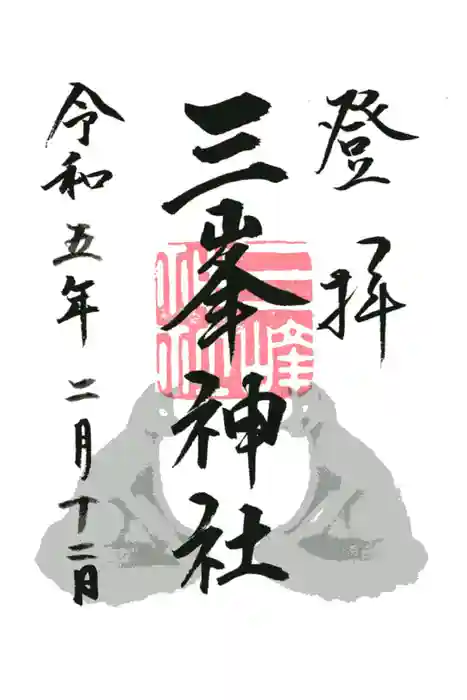 登拝
三峯神社
令和五年二月十二日